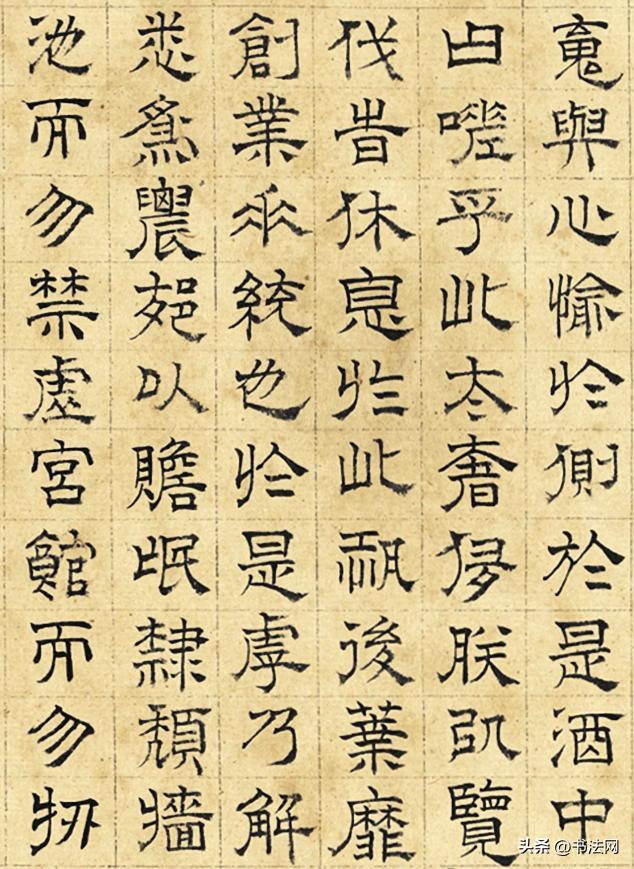 䰟與心愉於側於是酒中
曰嗟乎此太奢侈朕以覽
伐旹休息於此恐後葉靡
創業垂統也於是乎乃解
悉為農郊以贍氓隸頹牆
池而勿禁虛宮館而勿牣
头条 @书法网